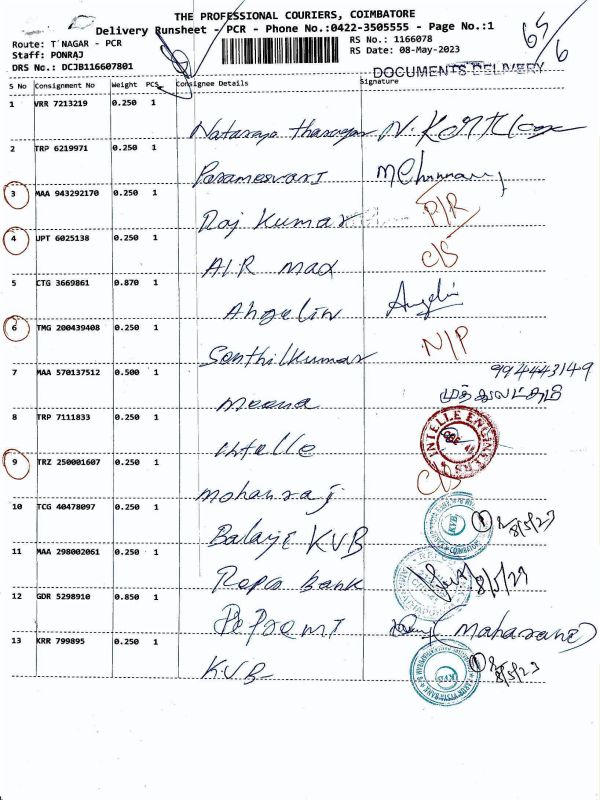 THE PROFESSIONAL COURIERS, COIMBATORE
Delivery Runsheet - PCR - Phone No.:0422-3505555 - Page No.:1
65/6
Route: T NAGAR - PCR
RS No.: 1166078
Staff: PONRAJ
RS Date: 08-May-2023
DRS No.: DCJB116607801
DOCUMENTS DELIVERY
S No Consignment No Weight PCS Consignee Details Signature
1 VRR 7213219 0.250 1
Nataraja
2 TRP 6219971 0.250 1
Parameswari
3 MAA 943292170 0.250 1
Raj Kumar P/R
4 UPT 6025138 0.250 1
AIR mad C/S
5 CTG 3669861 0.870 1
Angelin Angelin
6 TMG 200439408 0.250 1
Senthilkumar N/P
7 MAA 570137512 0.500 1
9944443149
Meena முத்துலட்சுமி
8 TRP 7111833 0.250 1
Intelle
INTELLE ENGINEERS
9 TRZ 250001607 0.250 1
C/S
mohanraj
10 TCG 40478097 0.250 1
Balaji KVB 8/5/23
11 MAA 298002061 0.250 1
Repco bank 8/5/23
12 GDR 5298910 0.850 1
(Maharani)
13 KRR 799895 0.250 1
KVB 8/5/23